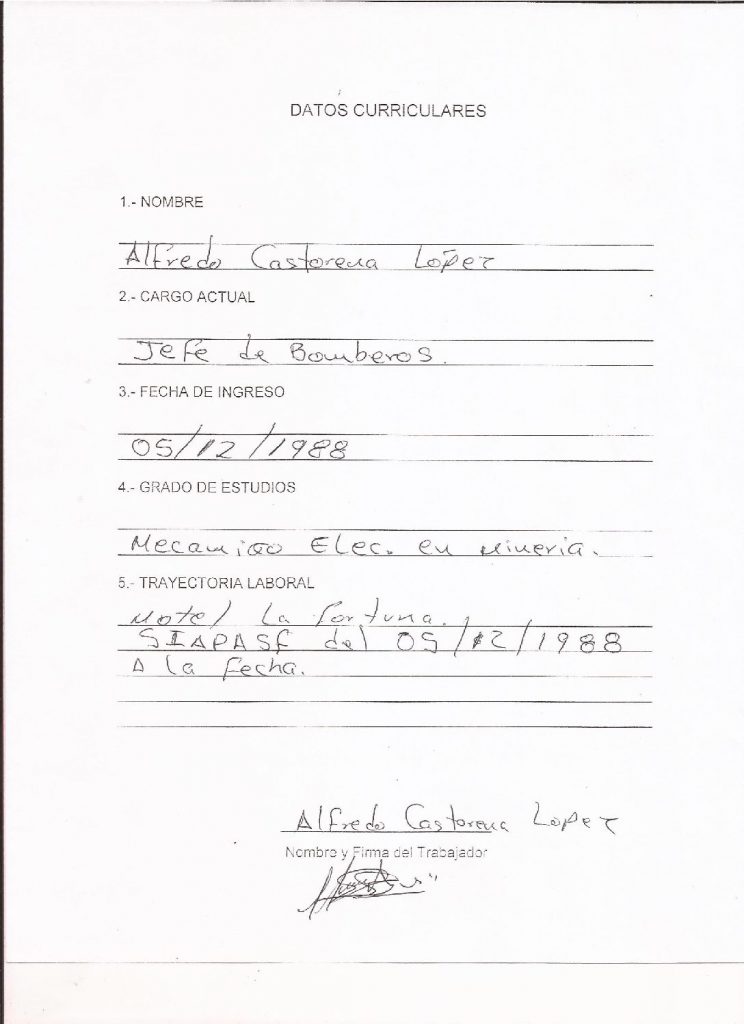 DATOS CURRICULARES
1.- NOMBRE
Alfredo Castorena López
2.- CARGO ACTUAL
Jefe de Bomberos.
3.- FECHA DE INGRESO
05/12/1988
4.- GRADO DE ESTUDIOS
Mecanico Elec. en Mineria.
5.- TRAYECTORIA LABORAL
Motel La fortuna.
SIAPASF del 05/12/1988
A la fecha.
Alfredo Castorena Lopez
Nombre y Firma del Trabajador